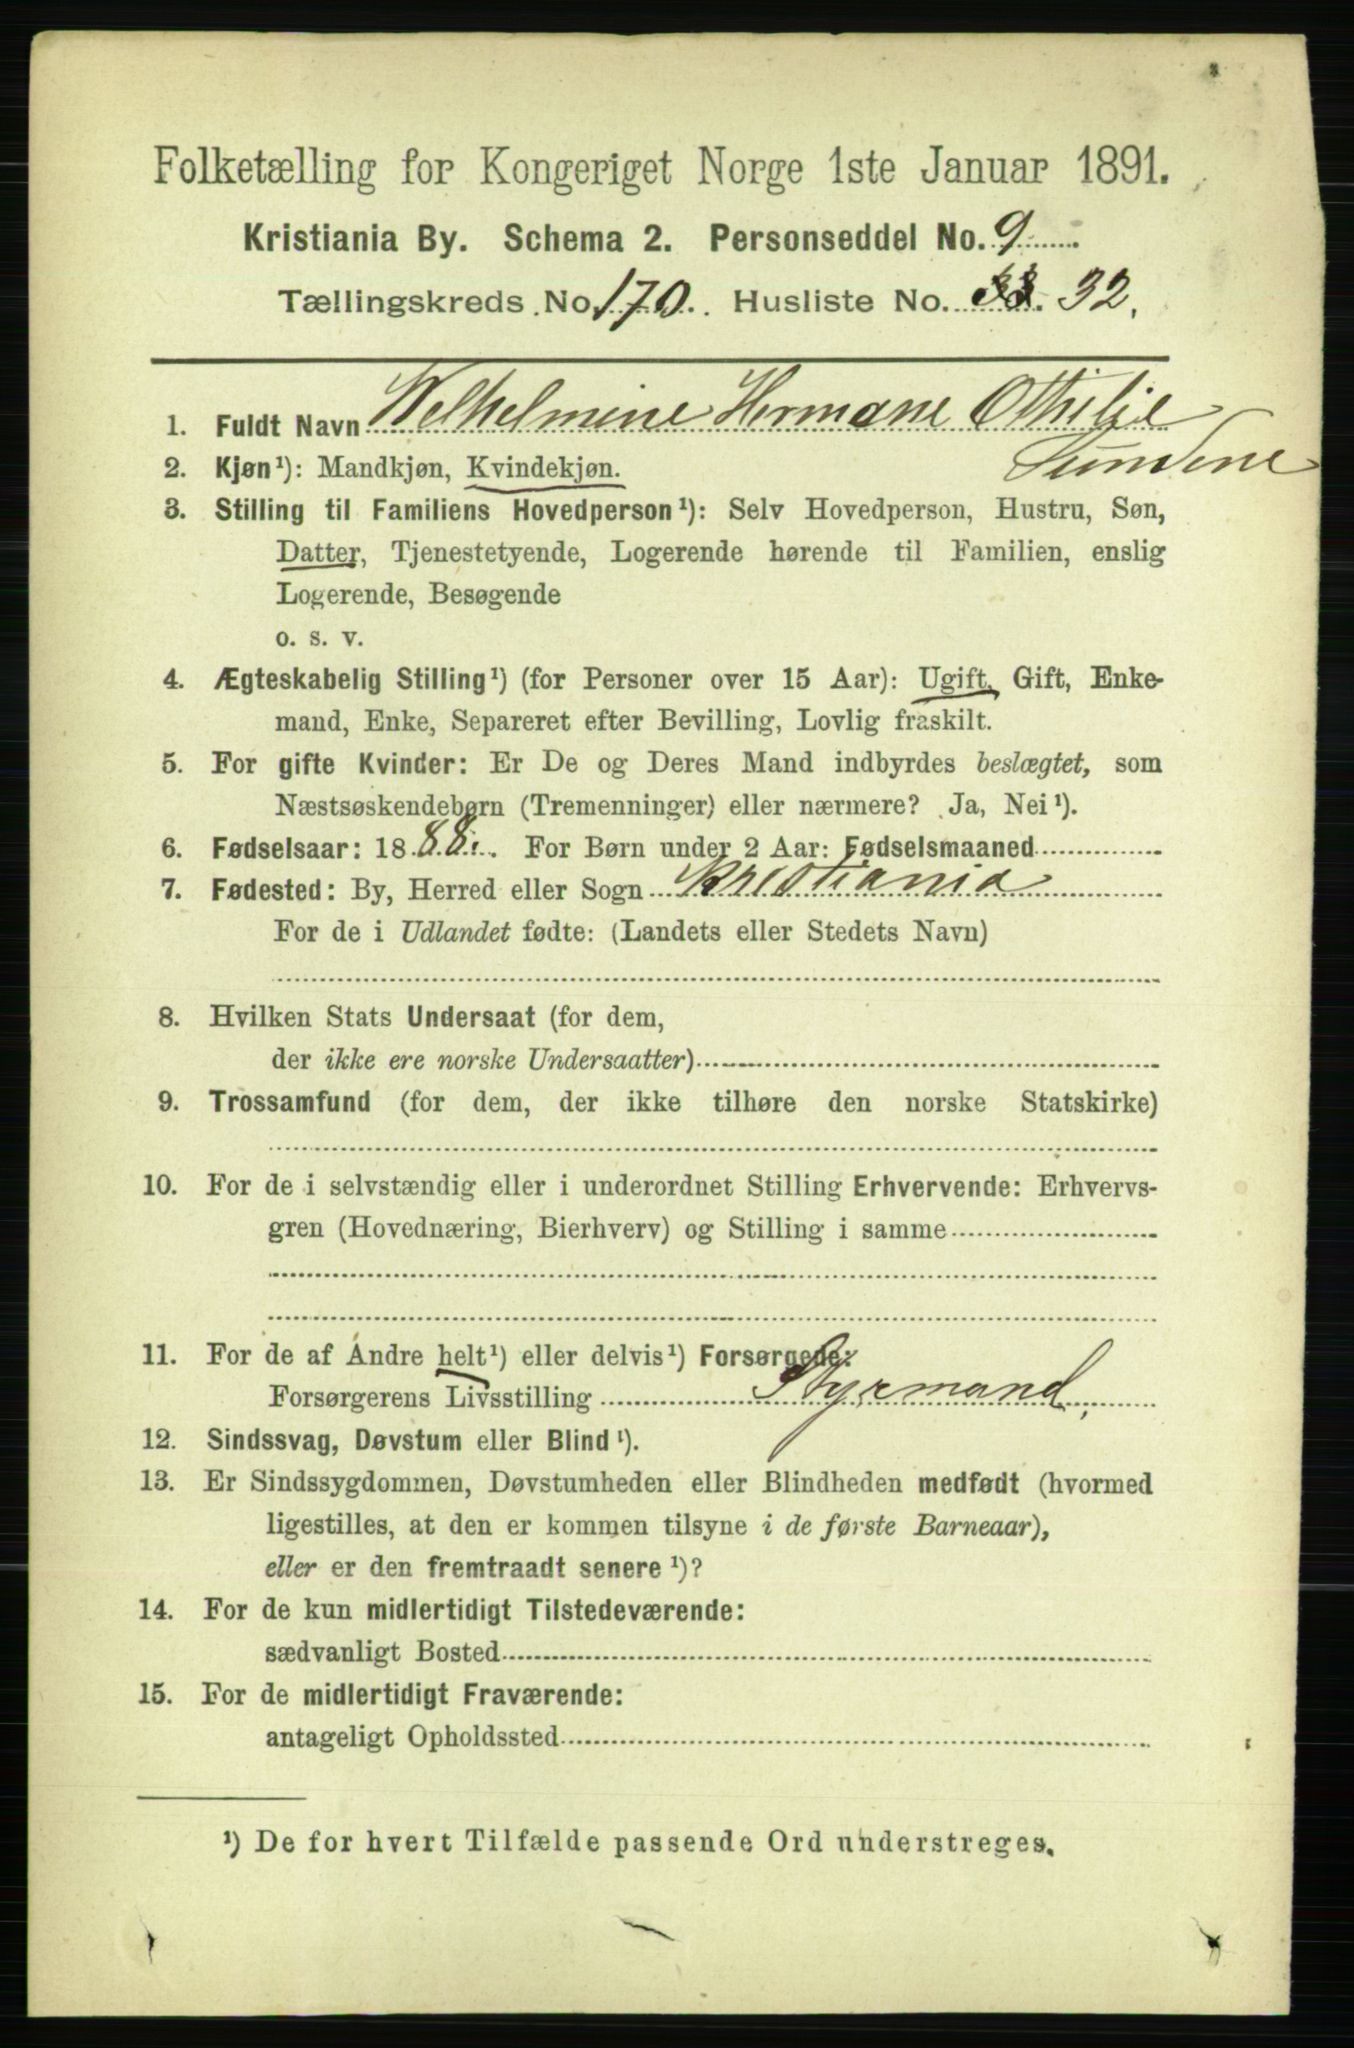 Folketælling for Kongeriget Norge 1ste Januar 1891.
Kristiania By. Schema 2. Personseddel No. 9
Tællingskreds No. 170. Husliste No. 33. 32.
1. Fuldt Navn Welhelmine Hermane Othilie
Sundene
2. Kjøn¹): Mandkjøn, Kvindekjøn.
3. Stilling til Familiens Hovedperson¹): Selv Hovedperson, Hustru, Søn,
Datter, Tjenestetyende, Logerende hørende til Familien, enslig
Logerende, Besøgende
o. s. v.
4. Ægteskabelig Stilling¹) (for Personer over 15 Aar): Ugift, Gift, Enke-
mand, Enke, Separeret efter Bevilling, Lovlig fraskilt.
5. For gifte Kvinder: Er De og Deres Mand indbyrdes beslægtet, som
Næstsøskendebørn (Tremenninger) eller nærmere? Ja, Nei¹).
6. Fødselsaar: 1888. For Børn under 2 Aar: Fødselsmaaned
7. Fødested: By, Herred eller Sogn Kristiania
For de i Udlandet fødte: (Landets eller Stedets Navn)
8. Hvilken Stats Undersaat (for dem,
der ikke ere norske Undersaatter)
9. Trossamfund (for dem, der ikke tilhøre den norske Statskirke)
10. For de i selvstændig eller i underordnet Stilling Erhvervende: Erhvervs-
gren (Hovednæring, Bierhverv) og Stilling i samme
11. For de af Andre helt¹) eller delvis¹) Forsørgede:
Forsørgerens Livsstilling Styrmand.
12. Sindssvag, Døvstum eller Blind¹).
13. Er Sindssygdommen, Døvstumheden eller Blindheden medfødt (hvormed
ligestilles, at den er kommen tilsyne i de første Barneaar),
eller er den fremtraadt senere¹)?
14. For de kun midlertidigt Tilstedeværende:
sædvanligt Bosted
15. For de midlertidigt Fraværende:
antageligt Opholdssted
¹) De for hvert Tilfælde passende Ord understreges.